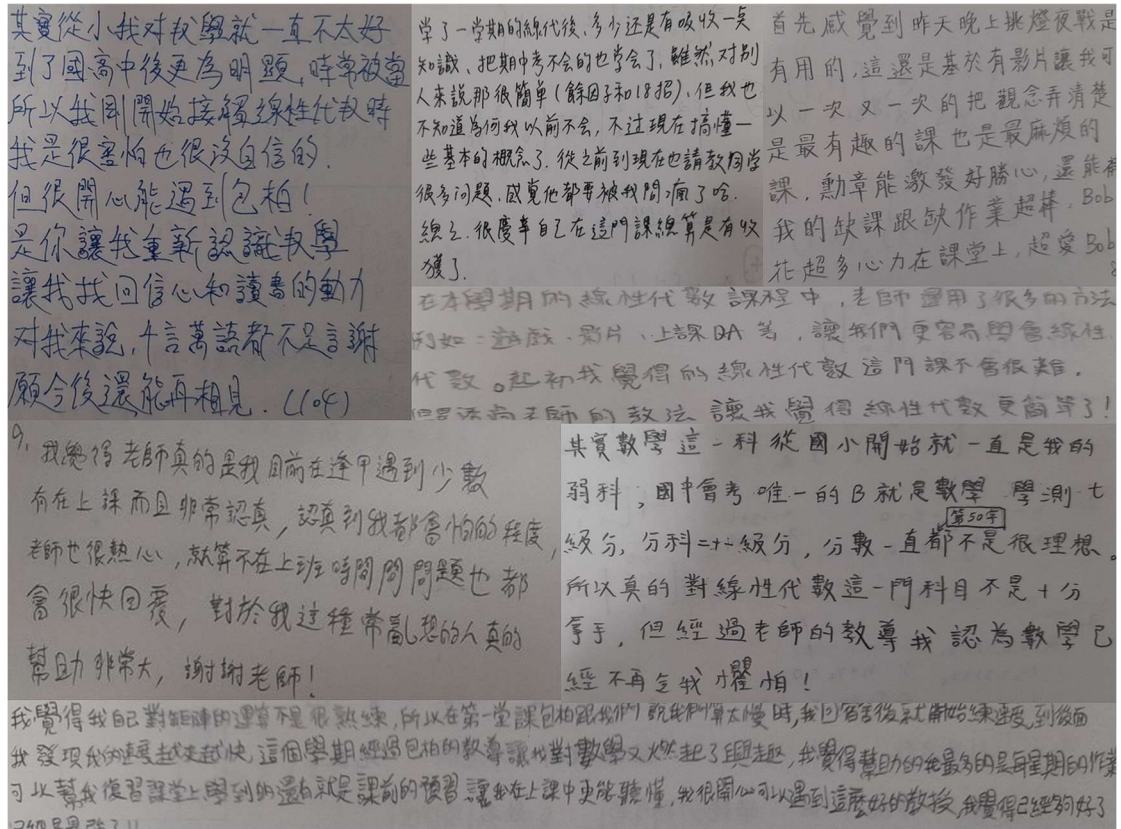 其實從小我对数學就一直不太好
到了國高中後更為明顯,時常被當
所以我剛開始接觸線性代数時
我是很害怕也很沒自信的.
但很開心能遇到包柏!
是你讓我重新認識数學
讓我找回信心和讀書的動力
对我來說,千言萬語都不足言謝
願今後還能再相見. (104)
学了一学期的線代後,多少还是有吸收一点
知識、把期中考不会的也学会了,雖然对別
人來說那很簡單(餘因子和18招),但我也
不知道為何我以前不会,不过現在搞懂一
些基本的概念了.從之前到現在也請教同学
很多问題,感覚他都要被我問瘋了哈.
總之,很慶幸自己在這門課總算是有收
獲了.
首先感覺到昨天晚上挑燈夜戰是
有用的,這還是基於有影片讓我可
以一次又一次的把觀念弄清楚
是最有趣的課也是最麻煩的
課,勳章能激發好勝心,還能
我的缺課跟缺作業超棒,Bob
花超多心力在課堂上,超愛Bob
在本學期的線性代數課程中,老師運用了很多的方法
例如:遊戲、影片、上課QA等,讓我們更容易學會線性
代數。起初我覺得的線性代數這門課不會很難,
但是透過老師的教法讓我覺得線性代數更簡單了!
9. 我覺得老師真的是我目前在逢甲遇到少數
有在上課而且非常認真,認真到我都會怕的程度,
老師也很熱心,就算不在上班時間問問題也都
會很快回覆,對於我这種常亂想的人真的
幫助非常大,謝謝老師!
其實數學這一科從國小開始就一直是我的
弱科,國中會考唯一的B就是數學 學測七
級分,分科二十一級分,分數一直都不是很理想。
第50字
所以真的對線性代數這一門科目不是十分
拿手,但經過老師的教導我認為數學已
經不再令我懼怕!
我覺得我自己對矩陣的運算不是很熟練,所以在第一堂課包柏跟我們說我們算太慢時,我回宿舍後就開始練速度,到後面
我發現我的速度越來越快,這個學期經過包柏的教導讓我對數學又燃起了興趣,我覺得幫助的我最多的是每星期的作業
可以幫我復習課堂上學到的還有就是課前的預習讓我在上課中更能聽懂,我很開心可以遇到這麼好的教授,我覺得已經夠好了